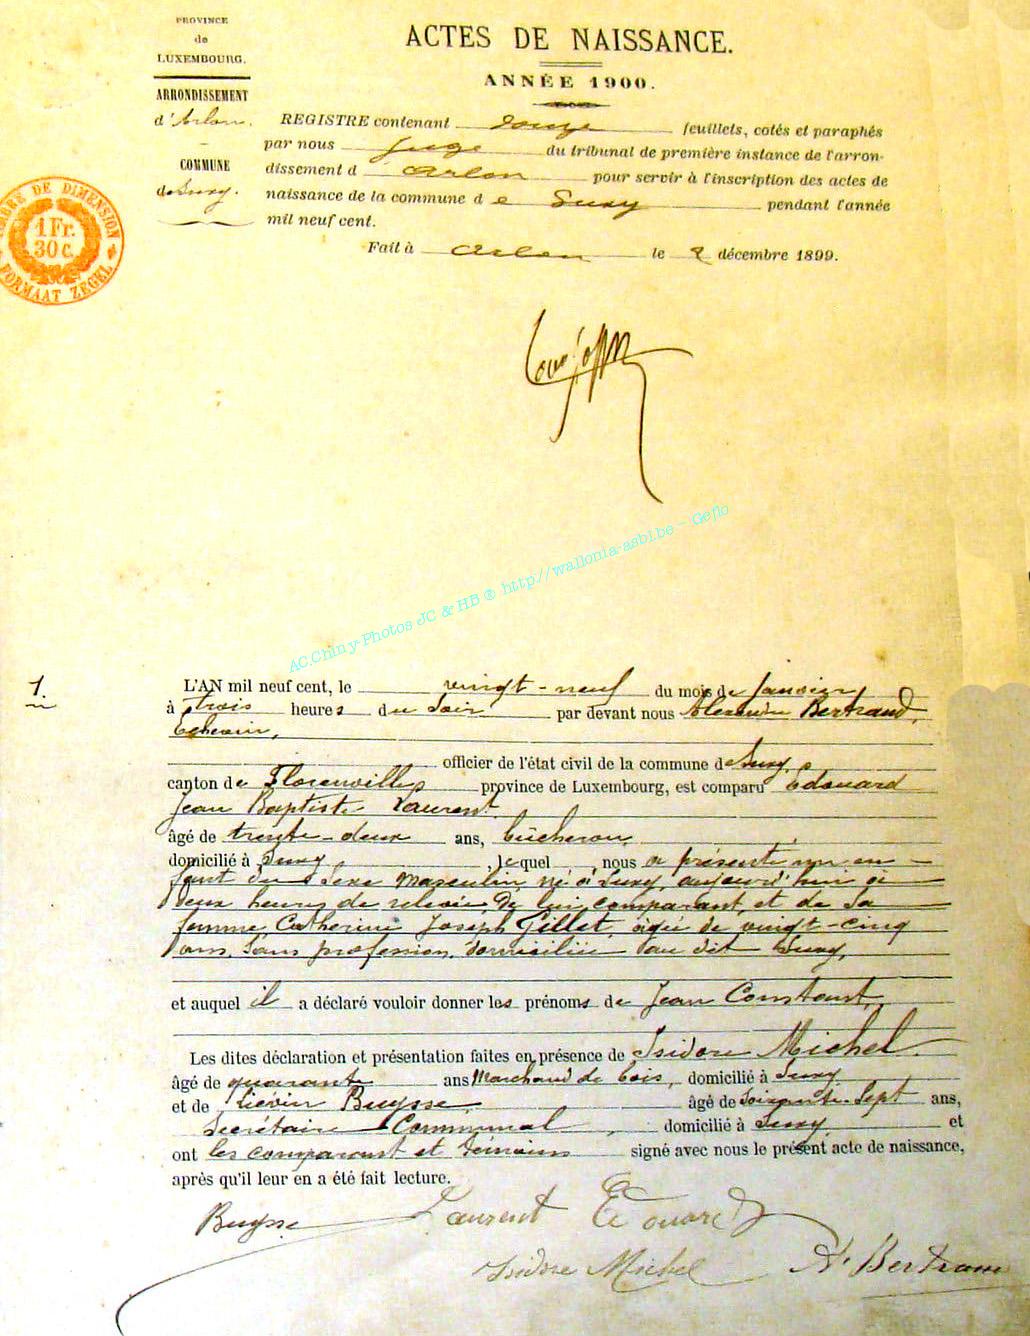 PROVINCE
de
LUXEMBOURG.
ARRONDISSEMENT
d'Arlon.
COMMUNE
de Suxy.
TIMBRE DE DIMENSION
1 Fr.
30 C.
FORMAAT ZEGEL
ACTES DE NAISSANCE.
ANNÉE 1900.
REGISTRE contenant douze feuillets, cotés et paraphés
par nous Juge du tribunal de première instance de l'arron-
dissement d Arlon pour servir à l'inscription des actes de
naissance de la commune d e Suxy pendant l'année
mil neuf cent.
Fait à Arlon le 2 décembre 1899.
AC.Chiny-Photos JC & HB ® http://wallonia-asbl.be - Geflo
1.
L'AN mil neuf cent, le vingt-neuf du mois de Janvier
à trois heures du Soir par devant nous Alexandre Bertrand,
Echevin,
officier de l'état civil de la commune de Suxy,
canton de Florenville province de Luxembourg, est comparu Edouard
Jean Baptiste Laurent
âgé de trente-deux ans, bûcheron,
domicilié à Suxy, lequel nous a présenté un en-
fant du Sexe masculin né à Suxy, aujourd'hui à
deux heures de relevée, de lui, comparant, et de sa
femme, Catherine Joseph Gillet, âgée de vingt-cinq
ans, Sans profession, domiciliée au dit Suxy,
et auquel il a déclaré vouloir donner les prénoms de Jean Constant,
Les dites déclaration et présentation faites en présence de Isidore Michel
âgé de quarante ans Marchand de bois, domicilié à Suxy
et de Liévin Buysse, âgé de soixante-sept ans,
Secrétaire Communal, domicilié à Suxy, et
ont les comparant et témoins signé avec nous le présent acte de naissance,
après qu'il leur en a été fait lecture.
Buysse Laurent Edouard
Isidore Michel A. Bertrand